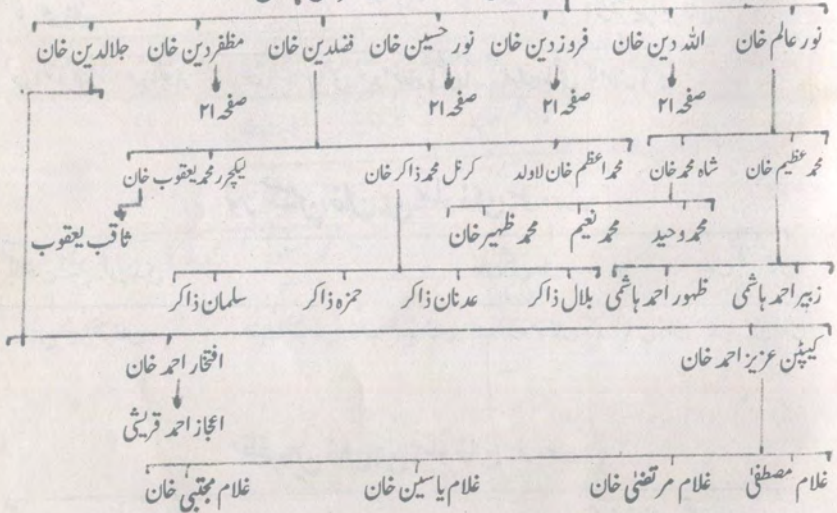 نور عالم خان اللہ دین خان فروز دین خان نور حسین خان فضلدین خان مظفر دین خان جلالدین خان
صفحہ ۲۱ صفحہ ۲۱ صفحہ ۲۱ صفحہ ۲۱
محمد عظیم خان شاہ محمد خان محمد اعظم خان لاولد کرنل محمد ذاکر خان لیکچرر محمد یعقوب خان
محمد وحید محمد نعیم محمد ظہیر خان ثاقب یعقوب
زبیر احمد ہاشمی ظہور احمد ہاشمی بلال ذاکر عدنان ذاکر حمزہ ذاکر سلمان ذاکر
کیپٹن عزیز احمد خان افتخار احمد خان
اعجاز احمد قریشی
غلام مصطفیٰ غلام مرتضیٰ خان غلام یاسین خان غلام مجتبیٰ خان